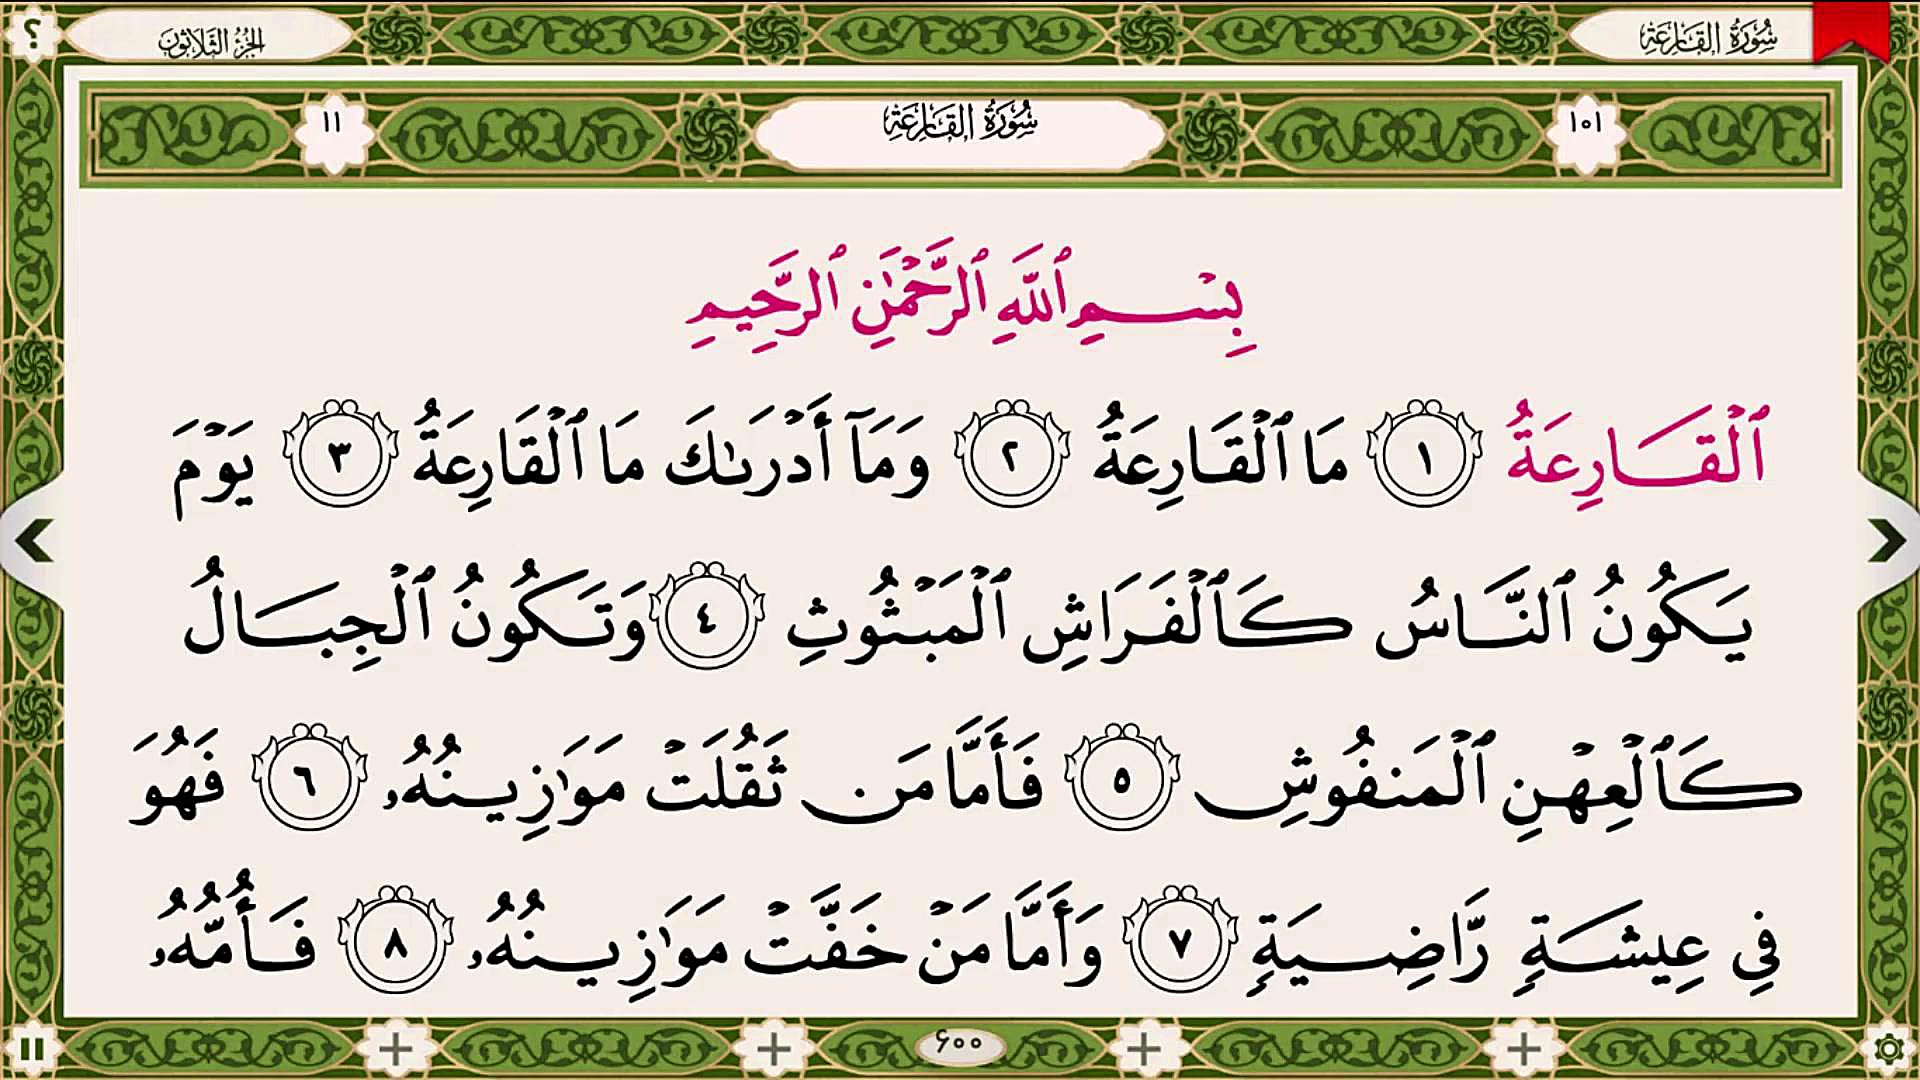 ؟
الجزء الثلاثون
سورة القارعة
١١
سُورَةُ القَارِعَةِ
١٠١
بِسۡمِ ٱللَّهِ ٱلرَّحۡمَٰنِ ٱلرَّحِيمِ
ٱلۡقَارِعَةُ ١ مَا ٱلۡقَارِعَةُ ٢ وَمَآ أَدۡرَىٰكَ مَا ٱلۡقَارِعَةُ ٣ يَوۡمَ
يَكُونُ ٱلنَّاسُ كَٱلۡفَرَاشِ ٱلۡمَبۡثُوثِ ٤ وَتَكُونُ ٱلۡجِبَالُ
كَٱلۡعِهۡنِ ٱلۡمَنفُوشِ ٥ فَأَمَّا مَن ثَقُلَتۡ مَوَٰزِينُهُۥ ٦ فَهُوَ
فِي عِيشَةٖ رَّاضِيَةٖ ٧ وَأَمَّا مَنۡ خَفَّتۡ مَوَٰزِينُهُۥ ٨ فَأُمُّهُۥ
۶۰۰